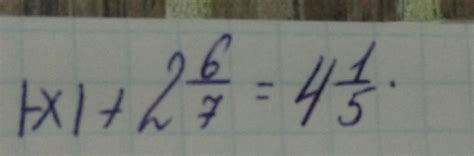 |-x| + 2 6/7 = 4 1/5.